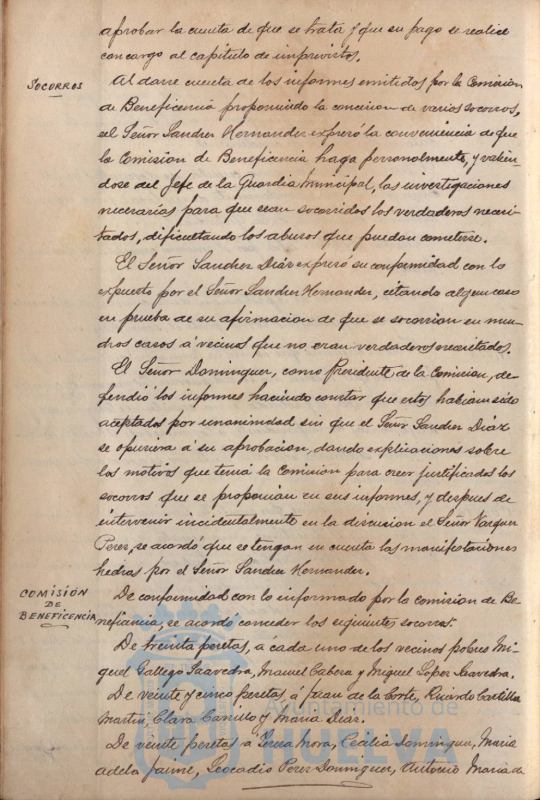 aprobar la cuenta de que se trata y que su pago se realice
con cargo al capítulo de imprevistos.
SOCORROS
Al darse cuenta de los informes emitidos por la Comision
de Beneficencia proponiendo la concesion de varios socorros,
el Señor Sanchez Hernandez expresó la conveniencia de que
la Comision de Beneficencia haga personalmente, y valien-
dose del Jefe de la Guardia Municipal, las investigaciones
necesarias para que sean socorridos los verdaderos necesi-
tados, dificultando los abusos que puedan cometerse.
El Señor Sanchez Diáz expresó su conformidad con lo
expuesto por el Señor Sanchez Hernandez, citando algun caso
en prueba de su afirmacion de que se socorrian en mu-
chos casos a vecinos que no eran verdaderos necesitados.
El Señor Dominguez, como Presidente de la Comision, de-
fendió los informes haciendo constar que estos habian sido
aceptados por unanimidad sin que el Señor Sanchez Diáz
se opusiera á su aprobacion, dando explicaciones sobre
los motivos que tenia la Comision para creer justificados los
socorros que se proponian en sus informes, y despues de
intervenir incidentalmente en la discusion el Señor Vazquez
Perez, se acordó que se tengan en cuenta las manifestaciones
hechas por el Señor Sanchez Hernandez.
COMISIÓN
DE
BENEFICENCIA
De conformidad con lo informado por la comision de Be-
neficencia, se acordó conceder los siguientes socorros:
De treinta pesetas, á cada uno de los vecinos pobres Mi-
guel Gallego Saavedra, Manuel Cabera y Miguel Lopez Saavedra.
De veinte y cinco pesetas, á Juan de la Corte, Ricardo Castilla
Martin, Clara Carrillo y Maria Diaz.
De veinte pesetas a Teresa Mora, Cecilia Dominguez, Maria
Adela Jaime, Leocadio Perez Dominguez, Antonio Maria de
Ayuntamiento de
HUELVA